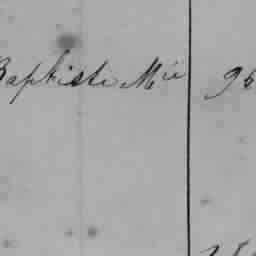 Baptiste Mié 95